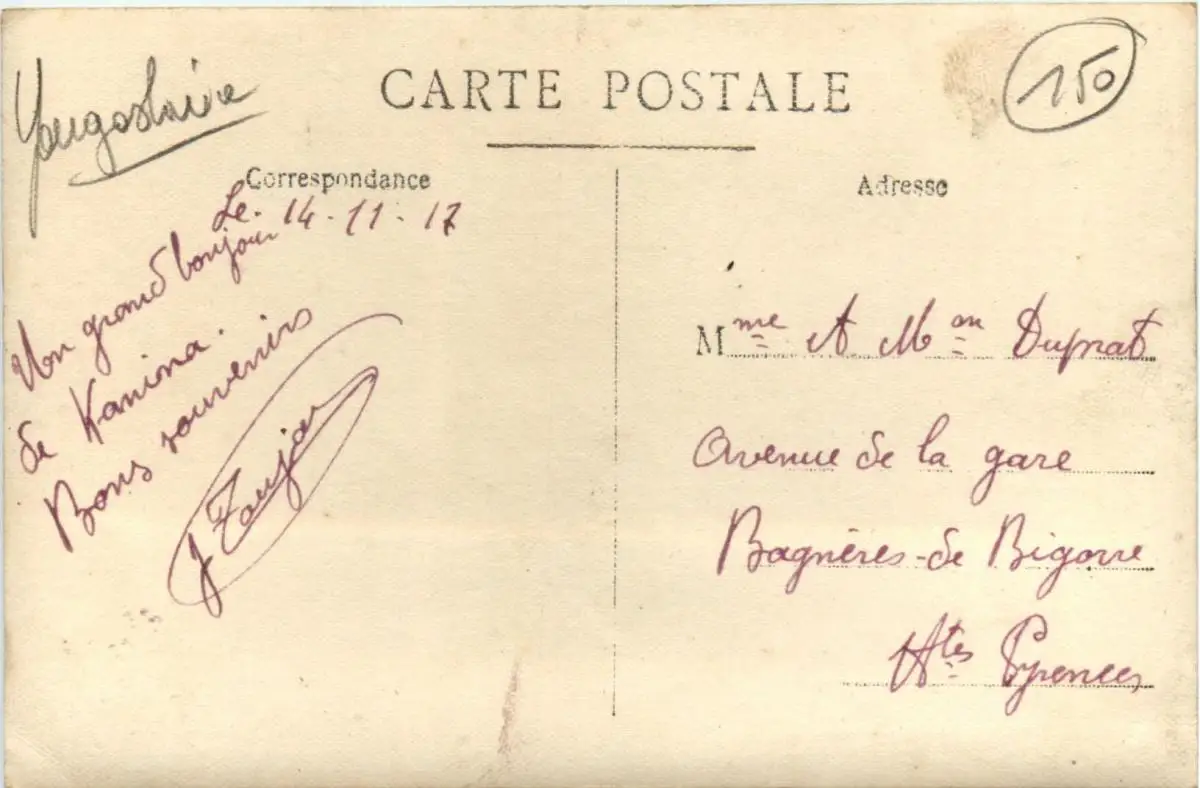 Yougoslavie
CARTE POSTALE
150
Correspondance
Le. 14-11-17
Un grand bonjour
de Kanina.
Bons souvenirs
J Toujan
Adresse
Mme et Mon Duprat
Avenue de la gare
Bagnères-de Bigorre
Htes Pyrenees